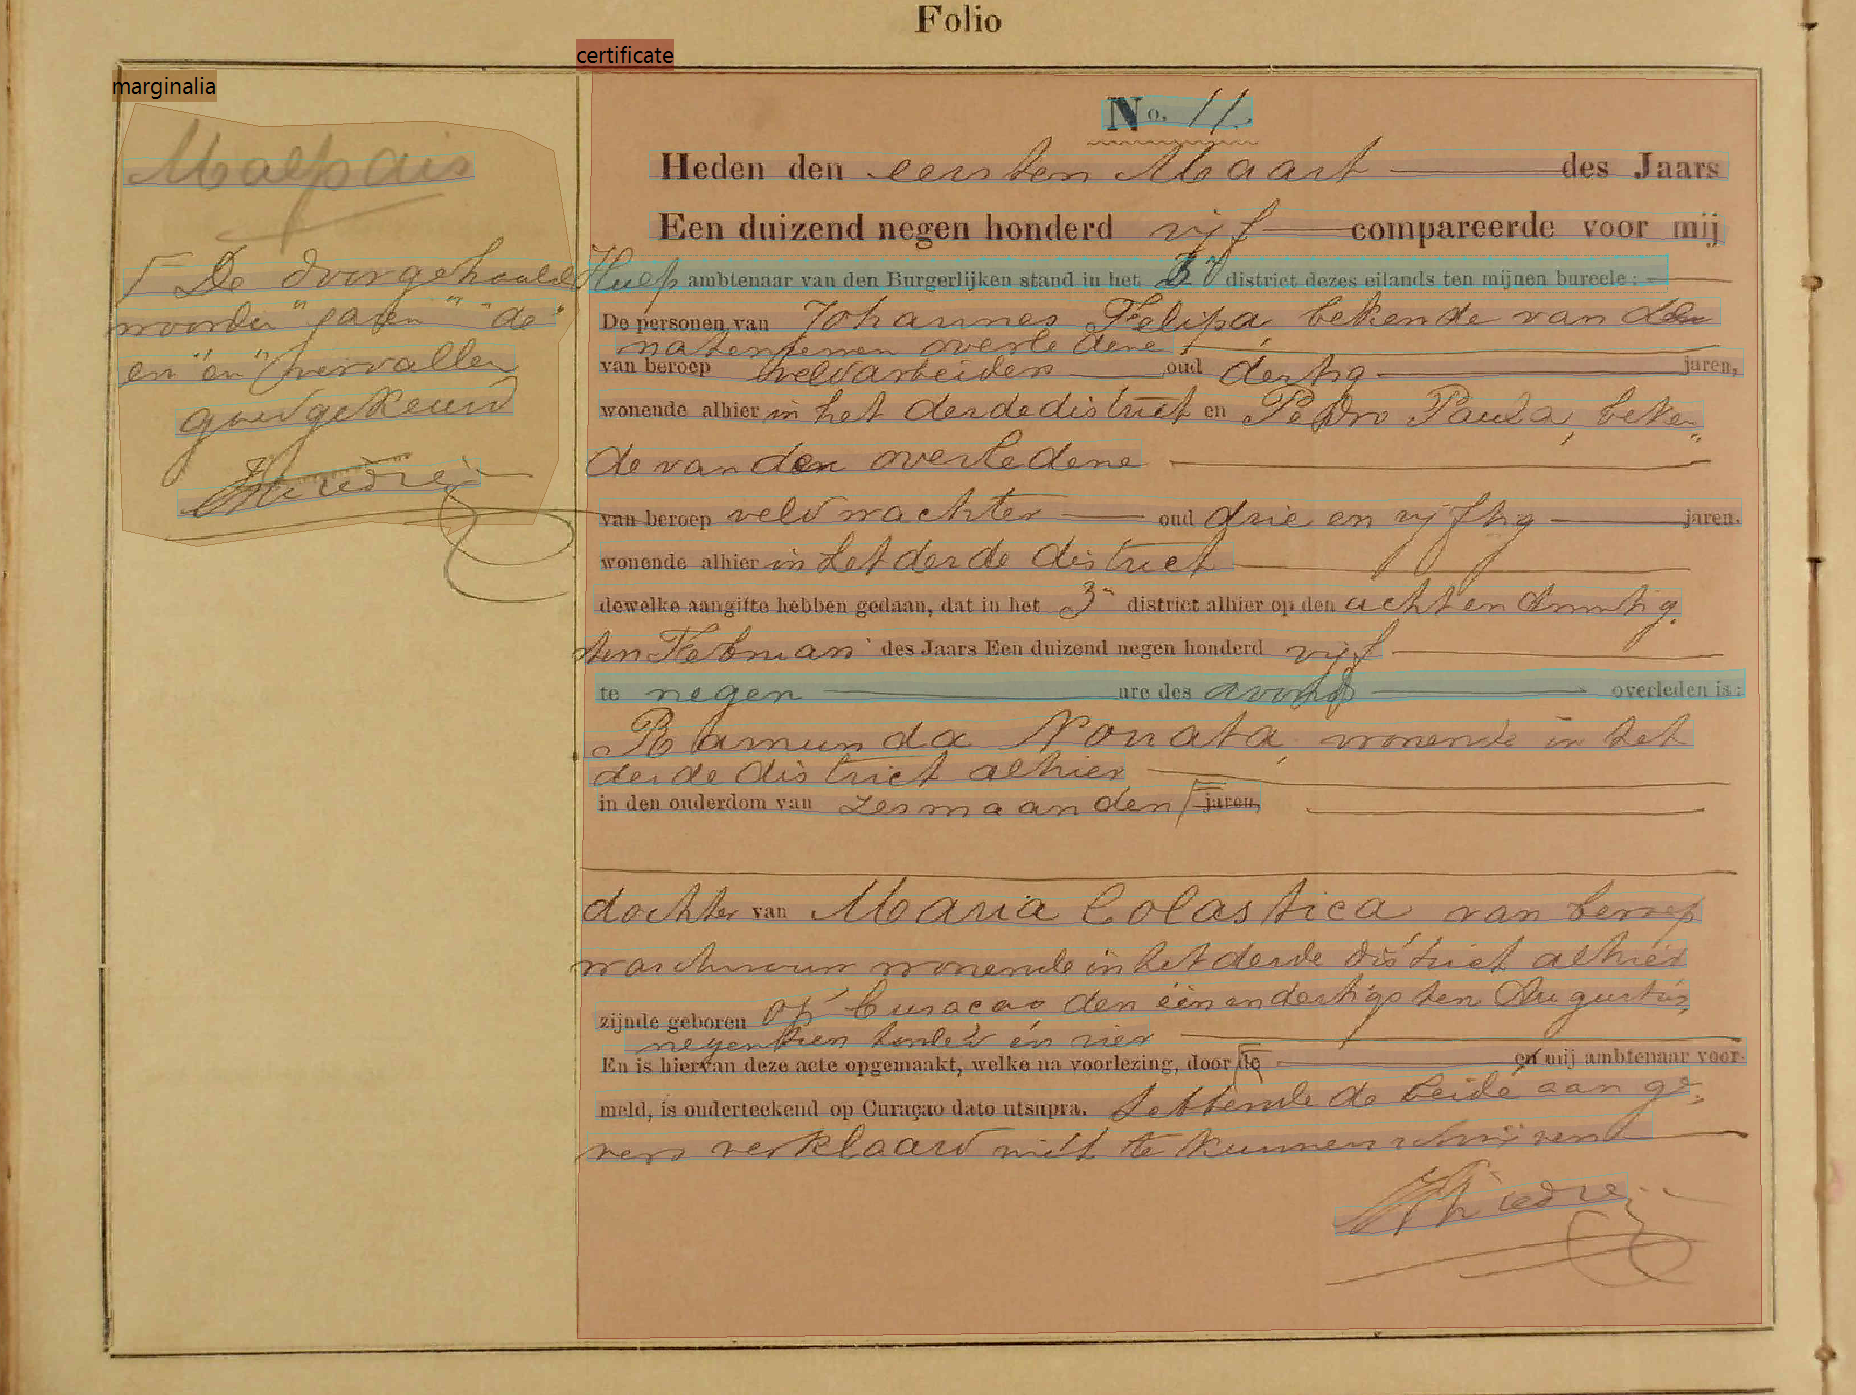 Folio
certificate
marginalia
Malpais
De doorgehaalde
woorden "jaren" "de"
en "en" vervallen
goedgekeurd
No. 11.
Heden den eersten Maart des Jaars
Een duizend negen honderd vijf compareerde voor mij
Hulp ambtenaar van den Burgerlijken stand in het 3e district dezes eilands ten mijnen bureele:
De personen van Johannes Felipa, bekende van den
overledene
van beroep veldarbeider oud dertig jaren,
wonende alhier in het derde district en Pedro Paula, beken-
de van den overledene
van beroep veldwachter oud drie en vijftig jaren.
wonende alhier in het derde district
dewelke aangifte hebben gedaan, dat in het 3e district alhier op den acht en twintig
sten Februari des Jaars Een duizend negen honderd vijf
te negen ure des avonds overleden is:
Ramunda Nonata, wonende in het
derde district alhier
in den ouderdom van zes maanden jaren,
dochter van Maria Colastica van beroep
waschvrouw wonende in het derde district alhier
zijnde geboren op Curaçao den één en dertigsten Augustus
negentien honderd en vier
En is hiervan deze acte opgemaakt, welke na voorlezing, door de en mij ambtenaar voor-
meld, is onderteekend op Curaçao dato utsupra. hebbende de beide aange-
vers verklaard niet te kunnen schrijven